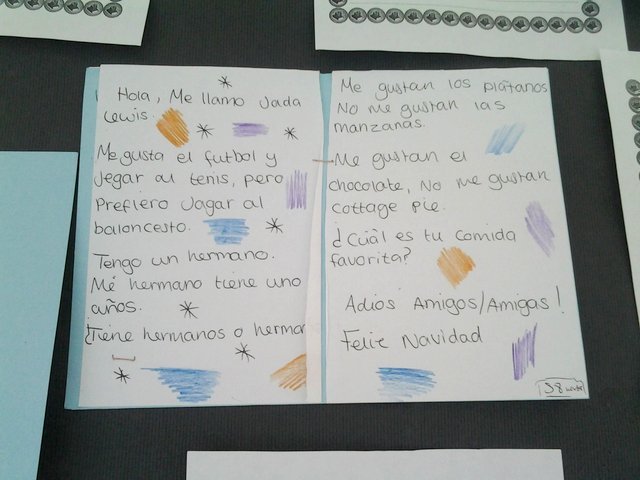 Hola, Me llamo Jada
Lewis.
Me gusta el futbol y
Jegar al tenis, pero
Prefiero Jagar al
baloncesto.
Tengo un hermano.
Mé hermano tiene uno
años.
¿Tiene hermanos o hermar
Me gustan los plátanos
No me gustan las
manzanas.
Me gustan el
chocolate, No me gustan
cottage pie.
¿Cúál es tu comida
favorita?
Adios Amigos/Amigas!
Feliz Navidad